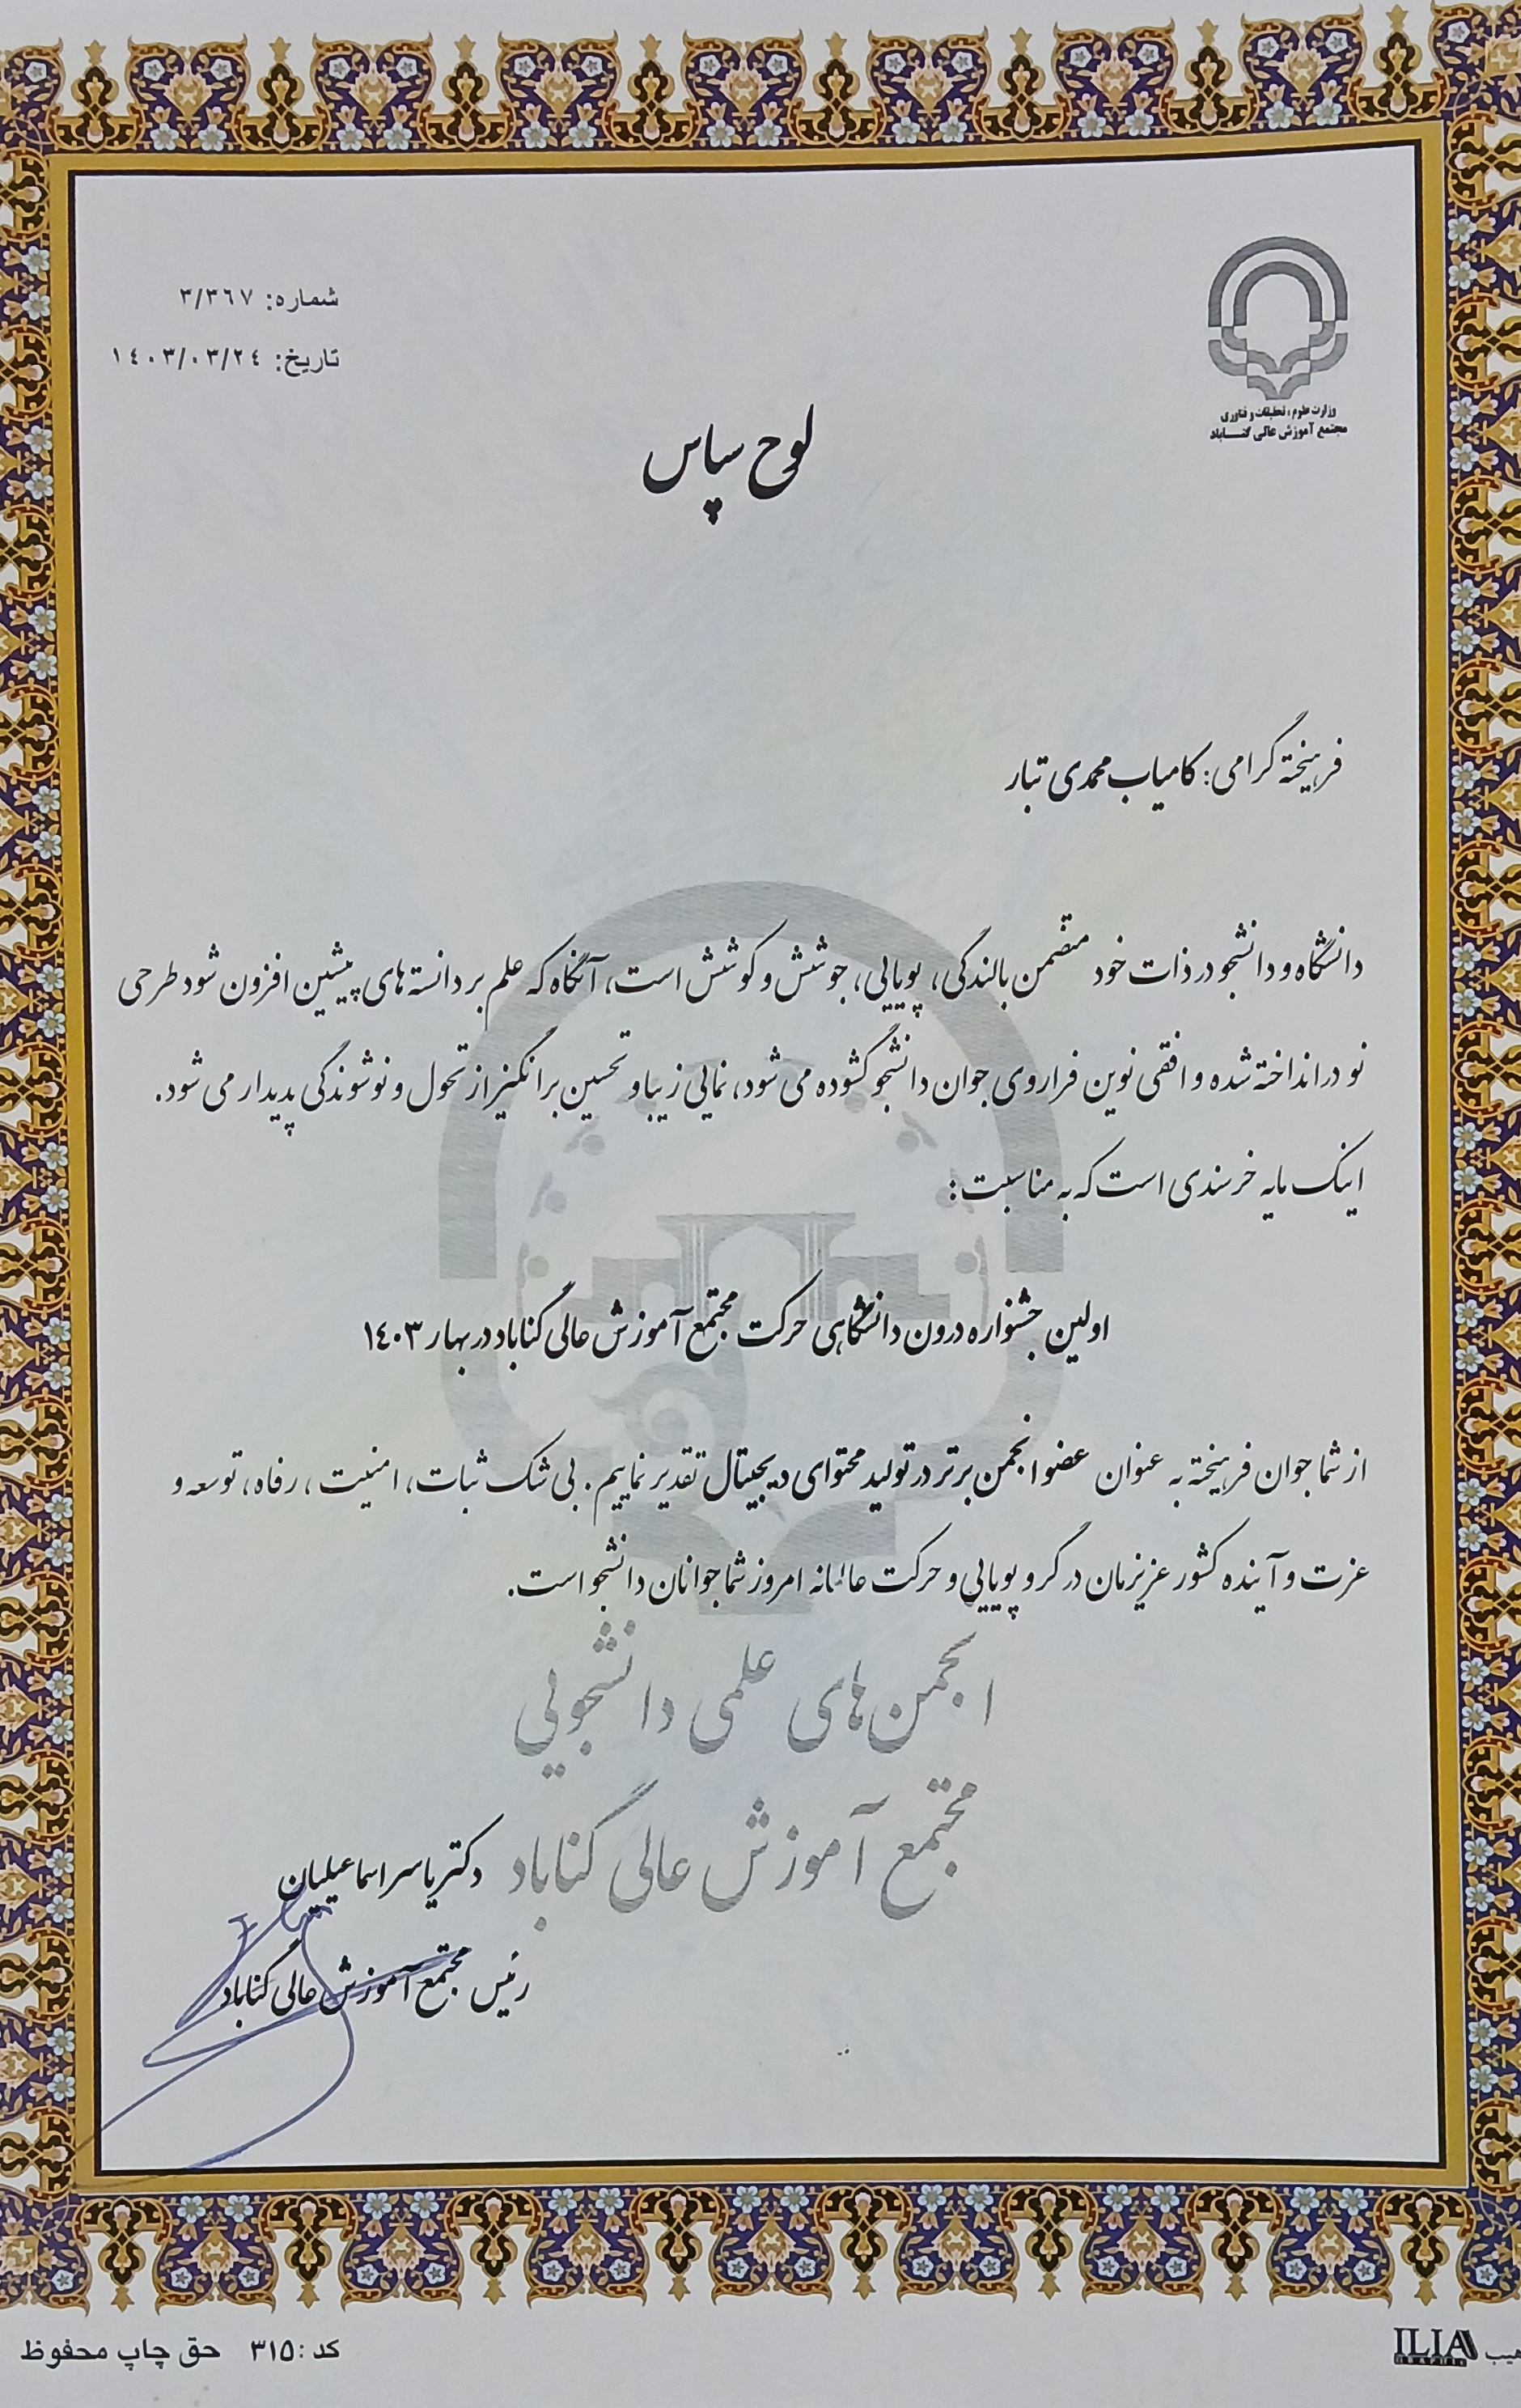 وزارت علوم، تحقیقات و فناوری
مجتمع آموزش عالی گناباد
شماره: ۳/۳٦۷
تاریخ: ۱٤۰۳/۰۳/۲٤
لوح سپاس
فرهیخته گرامی: کامیاب محمدی تبار
دانشگاه و دانشجو در ذات خود متضمن بالندگی، پویایی، جوشش و کوشش است، آنگاه که علم بر دانسته های پیشین افزون شود طرحی
نو در انداخته شده و افقی نوین فراروی جوان دانشجو گشوده می شود، نمایی زیبا و تحسین برانگیز از تحول و نوشوندگی پدیدار می شود.
اینک مایه خرسندی است که به مناسبت:
اولین جشنواره درون دانشگاهی حرکت مجتمع آموزش عالی گناباد در بهار ۱٤۰۳
از شما جوان فرهیخته به عنوان عضو انجمن برتر در تولید محتوای دیجیتال تقدیر نماییم. بی شک ثبات، امنیت، رفاه، توسعه و
عزت و آینده کشور عزیزمان در گرو پویایی و حرکت عالمانه امروز شما جوانان دانشجو است.
انجمن های علمی دانشجویی
مجتمع آموزش عالی گناباد
دکتر یاسر اسماعیلیان
رئیس مجتمع آموزش عالی گناباد
ILIA
GRAPHIC
کد: ۳۱۵ حق چاپ محفوظ